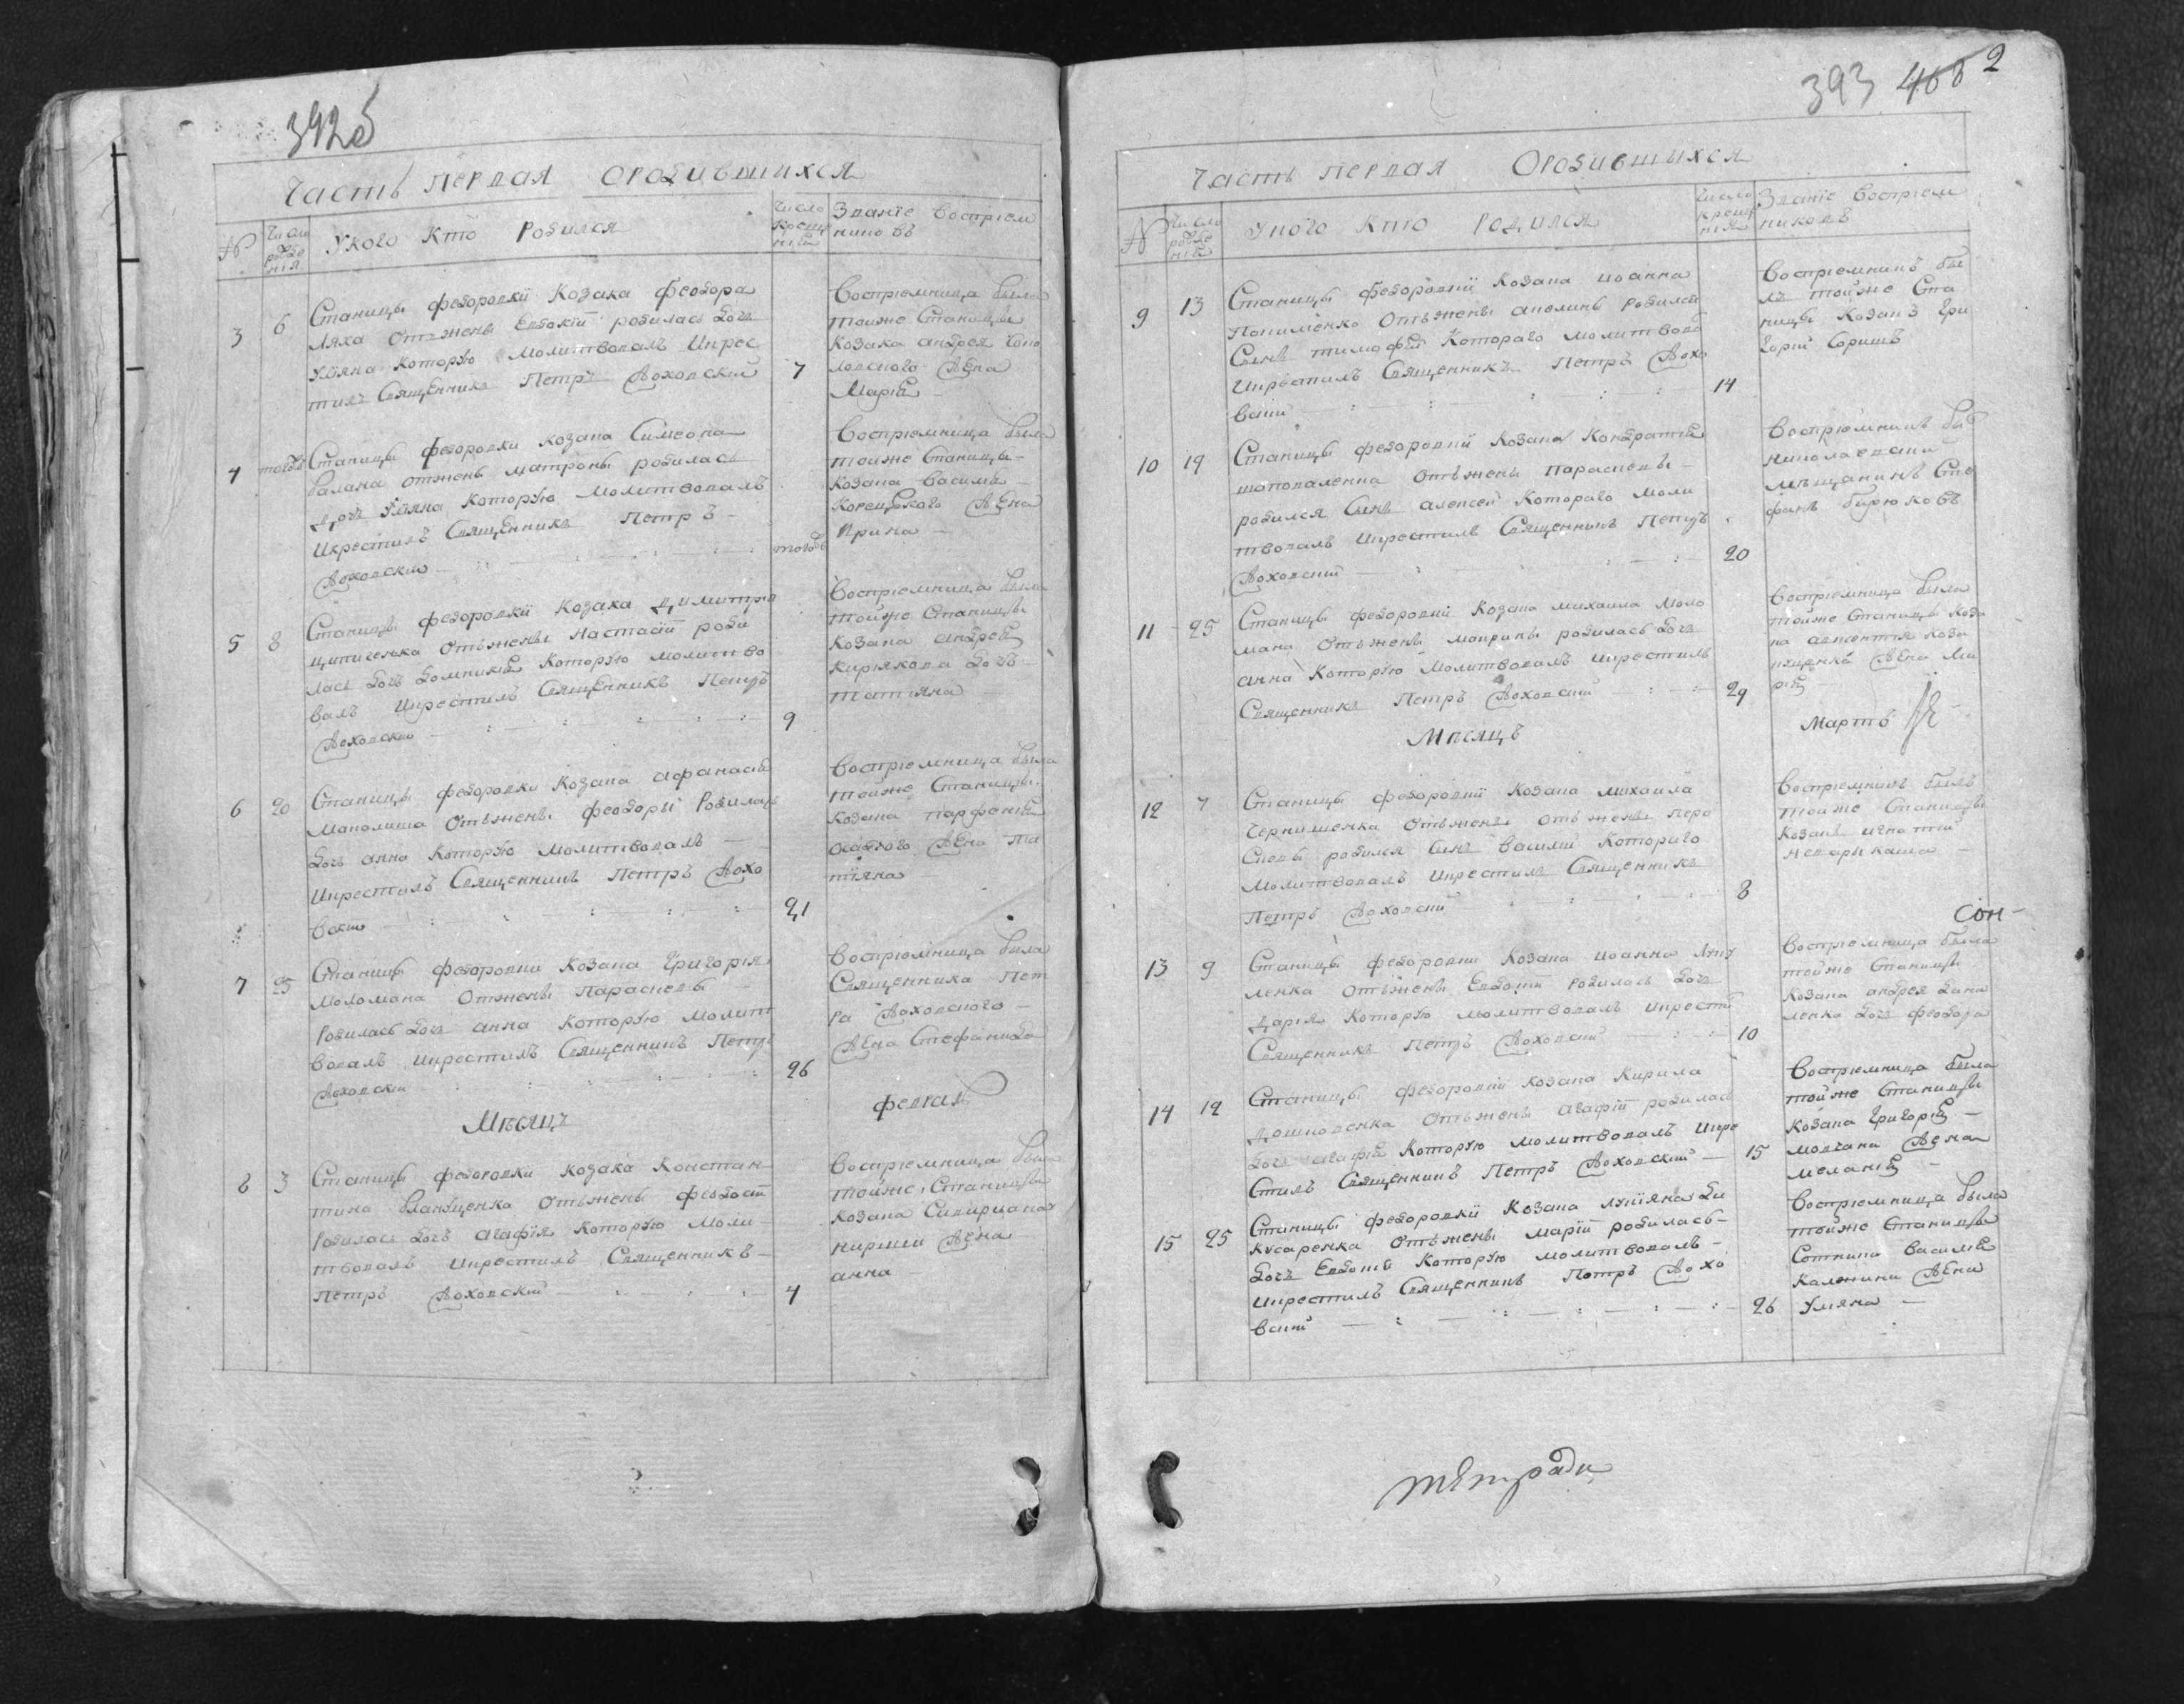 392об
Часть первая Ородившихся
№
Число рожде нія
Укого Кто Родился
Число креще нія
Званіе Воспріем никовъ
3
6
Станицы федоровкй Козака Феодора
Ляха Отжены Евдокій родилась Дочь
Уліяна Которую Молитвовалъ Икрес
тилъ Священникъ Петръ Ляховскій
7
Воспріемница была
тойже Станицы
Козака андрея
Жена
Марія
4
тогожъ
Станицы федоровки козака Симеона
балана отжены матроны родилась
Дочь Уліяна Которую Молитвовалъ
Икрестилъ Священникъ Петръ
Ляховскій
тогожъ
Воспріемница была
тойже Станицы
Козака Василія
Корецкого Жена
Ирина
5
8
Станицы федоровкй Козака Димитрія
Отъжены Настасій роди
лась Дочь Домникія Которую молитво
валъ Икрестилъ Священникъ Петръ
Ляховскій
9
Воспріемница была
тойже Станицы
Козака андрея
кирїякова Дочь
татіяна
6
20
Станицы федоровки Козака афанасія
Маполиша Отъжены феодоры Родилась
Дочь анна Которую молитвовалъ
Икрестилъ Священникъ Петръ Ляхо
вскій
21
Воспріемница была
тойже Станицы
козака парфенія
Жена та
тіяна
7
25
Станицы федоровки Козака Григорія
Моломана Отжены Параскевы
Родилась Дочь анна Которую Молит
вовалъ икрестилъ Священникъ Петръ
Ляховскій
26
Воспріемница была
Священника Пет
ра Ляховского
Жена Стефанида
Мѣсяцъ
февраль
8
3
Станицы федоровки козака Констан
тина Отъжены Феодосій
Родилась Дочь агафія Которую Моли
твовалъ икрестилъ Священникъ
Петръ Ляховскій
4
Воспріемница была
тойже Станицы
козака
Жена
анна
393 408 2
Часть первая Ородившихся
№
Число рожде нія
Укого Кто Родился
Число креще нія
Званіе Воспріем никовъ
9
13
Станицы Федоровкй Козака иоанна
Попиленко Отъжены аполины родился
Сынъ тимофей Котораго молитвовал
Икрестилъ Священникъ Петръ Ляхо
вскій
14
Воспріемникъ бы
лъ тойже Ста
ницы Козакъ Гри
горій Боришъ
10
19
Станицы федоровкй Козака Кондратія
шаповаленка Отъжены параскевы
родился Сынъ алексей Котораго моли
твовалъ икрестилъ Священникъ Петръ
Ляховскій
20
Воспріемникъ бы
николаевскій
мѣщанинъ Сте
фанъ бирюковъ
11
25
Станицы федоровкй Козака михаила Моло
мана Отъжены маврины родилась Дочь
анна Которую Молитвовалъ икрестилъ
Священникъ Петръ Ляховскій
29
Воспріемница была
тойже Станицы Коза
ка
Жена Ма
рія
Мѣсяцъ
Мартъ
12
7
Станицы федоровкй Козака михаила
Чернишенка Отъжены отъ жены Пара
скевы родился Сынъ Василій Котораго
Молитвовалъ икрестилъ Священникъ
Петръ Ляховскій
8
Воспріемникъ былъ
тойже Станицы
Козакъ игнатій
13
9
Станицы федоровки Козака иоанна
ленка отъжены Евдокій родилась Дочь
Дарія Которую Молитвовалъ икрести
Священникъ Петръ Ляховскій
10
Сон-
Воспріемница была
тойже Станицы
Козака андрея
ленка Дочь феодора
14
12
Станицы федоровкй козака Кирила
Отъжены агафій родилась
Дочь агафія Которую молитвовалъ икре
Стилъ Священникъ Петръ Ляховскій
15
Воспріемница была
тойже Станицы
Козака Григорія
Молчана Жена
меланія
15
25
Станицы федоровкй Козака лукіяна Ли
кусаренка Отъжены Марій родилась
Дочь Евдокія Которую молитвовалъ
Икрестилъ Священникъ Петръ Ляхо
вскій
26
Воспріемница была
тойже Станицы
Сотника Василія
Калинина Жена
Уліяна
тетради